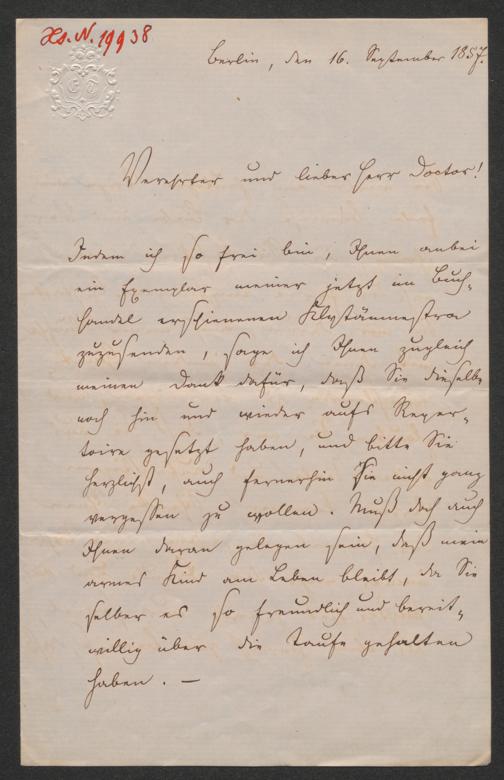 Hs. N. 19938
Berlin, den 16. September 1857.
Verehrter und lieber Herr Doctor!
Indem ich so frei bin, Ihnen anbei
ein Exemplar meiner jetzt im Buch-
handel erschienenen Klytämnestra
zuzusenden, sage ich Ihnen zugleich
meinen Dank dafür, daß Sie dieselbe
noch hin und wieder aufs Reper-
toire gesetzt haben, und bitte Sie
herzlichst, auch fernerhin sie nicht ganz
vergessen zu wollen. Muß doch auch
Ihnen daran gelegen sein, daß mein
armes Kind am Leben bleibt, da Sie
selber es so freundlich und bereit-
willig über die Taufe gehalten
haben. —